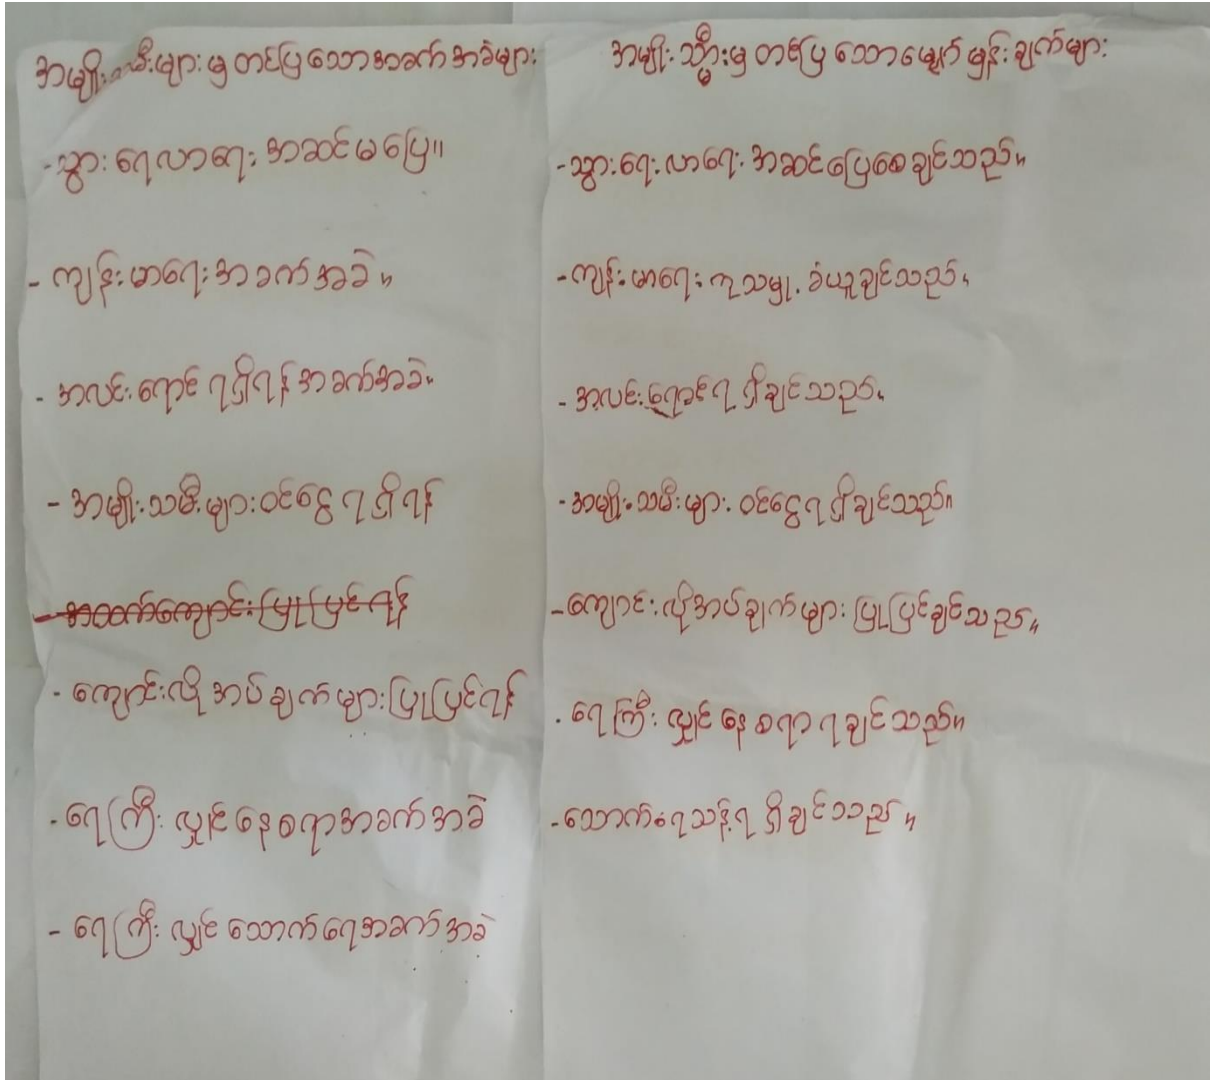 အမျိုးသမီးများမှ တင်ပြသောအခက်အခဲများ
-သွားရေလာရေး အဆင်မပြေ။
- ကျန်းမာရေးအခက်အခဲ။
- အလင်းရောင် ရရှိရန် အခက်အခဲ။
- အမျိုးသမီးများဝင်ငွေ ရရှိရန်
- ကျောင်းလိုအပ်ချက်များပြုပြင်ရန်
- ရေကြီးလျှင် နေစရာအခက်အခဲ
- ရေကြီးလျှင် သောက်ရေအခက်အခဲ
အမျိုးသ္မီးမှ တင်ပြသောမျှော်မှန်းချက်များ
-သွားရေးလာရေး အဆင်ပြေစေချင်သည်။
-ကျန်းမာရေး ကုသမှု ခံယူချင်သည်။
- အလင်းရောင်ရရှိချင်သည်။
- အမျိုးသမီးများ ဝင်ငွေရရှိချင်သည်။
-ကျောင်းလိုအပ်ချက်များ ပြုပြင်ချင်သည်။
- ရေကြီးလျှင် နေစရာ ရချင်သည်။
-သောက်ရေသန့်ရရှိချင်သည်။